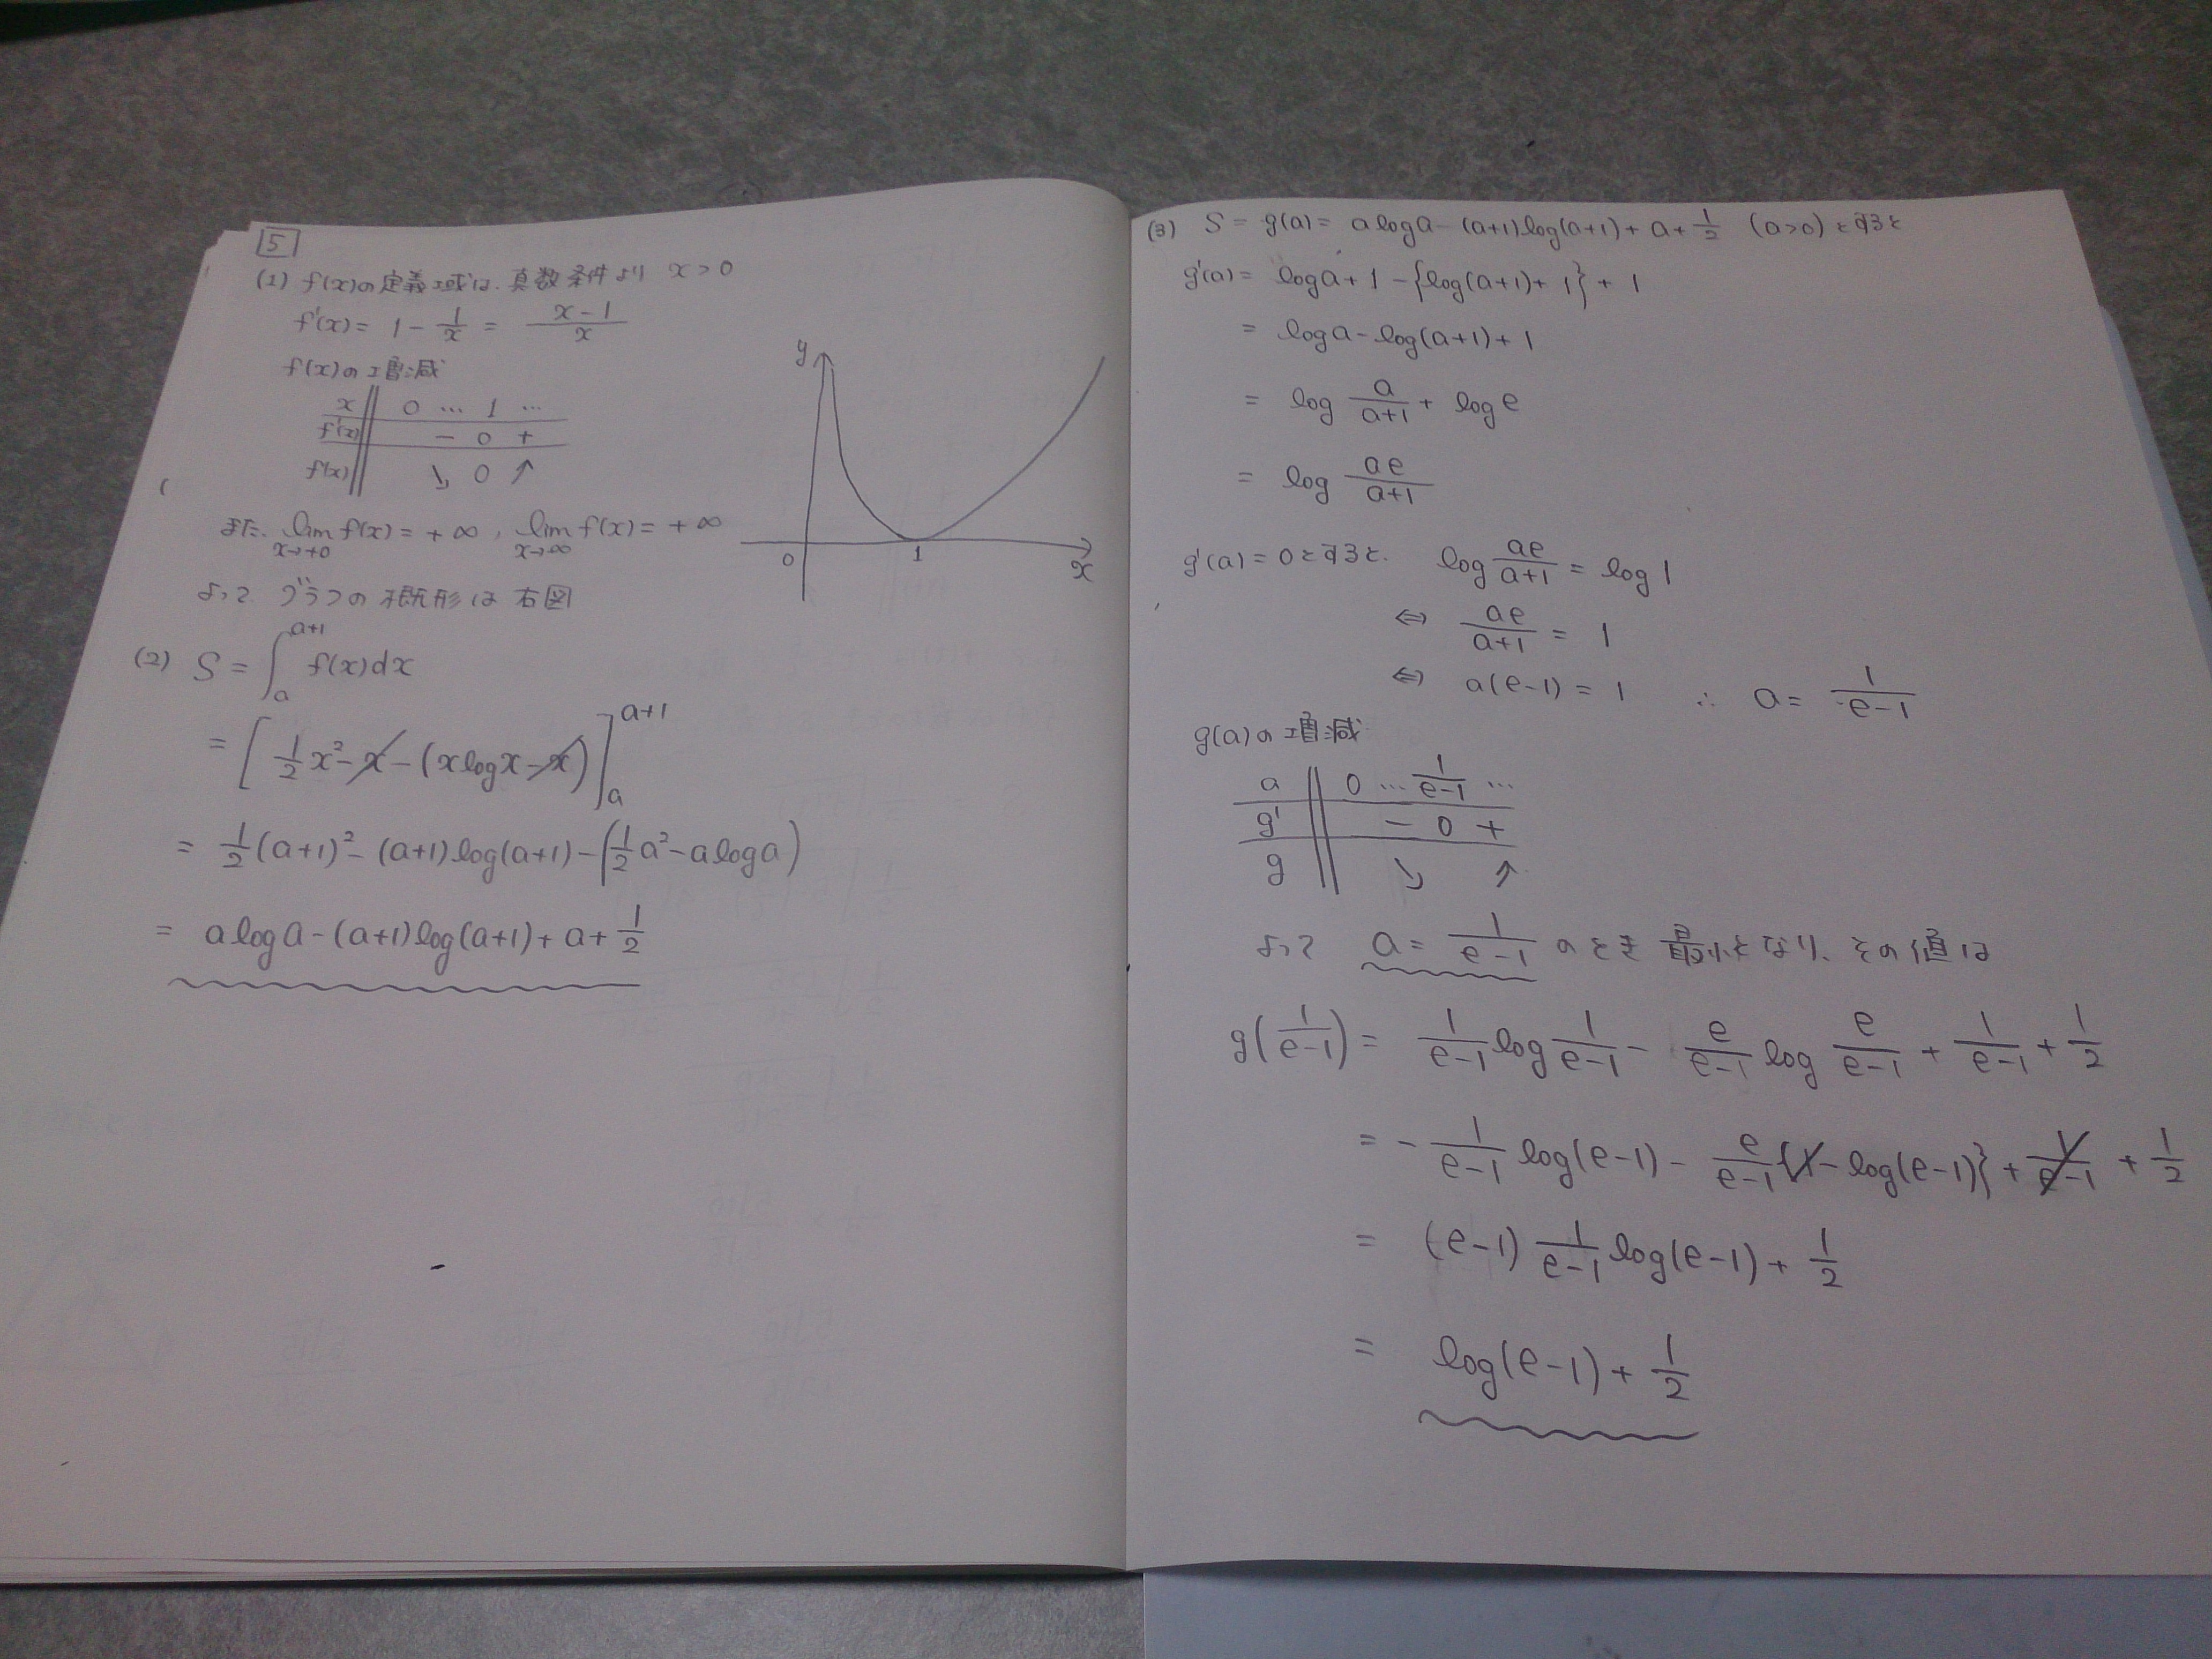 5
(1) f(x)の定義域は、真数条件より x>0
f'(x)= 1 - 1/x = (x-1)/x
f(x)の増減
x 0 … 1 …
f'(x) - 0 +
f(x) ↘ 0 ↗
また、lim[x→+0] f(x)=+∞, lim[x→∞] f(x)=+∞
よって グラフの概形は右図
y
0 1 x
(2) S = ∫[a→a+1] f(x)dx
= [1/2 x² - x - (x log x - x)] a+1 a
= 1/2 (a+1)² - (a+1) log(a+1) - (1/2 a² - a log a)
= a log a - (a+1) log(a+1) + a + 1/2
(3) S = g(a) = a log a - (a+1) log(a+1) + a + 1/2 (a>0) とすると
g'(a) = log a + 1 - {log(a+1) + 1} + 1
= log a - log(a+1) + 1
= log a/(a+1) + log e
= log ae/(a+1)
g'(a)=0とすると、 log ae/(a+1) = log 1
⇔ ae/(a+1) = 1
⇔ a(e-1) = 1 ∴ a = 1/(e-1)
g(a)の増減
a 0 … 1/(e-1) …
g' - 0 +
g ↘ ↗
よって a = 1/(e-1) のとき 最小となり、その値は
g(1/(e-1)) = 1/(e-1) log 1/(e-1) - e/(e-1) log e/(e-1) + 1/(e-1) + 1/2
= - 1/(e-1) log(e-1) - e/(e-1) {1 - log(e-1)} + 1/(e-1) + 1/2
= (e-1) 1/(e-1) log(e-1) + 1/2
= log(e-1) + 1/2